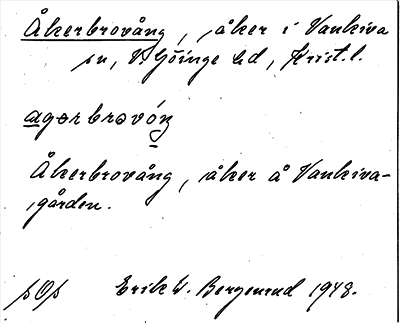 Åkerbrovång, åker i Vankiva
sn, V. Göinge hd, Krist. l.
agərbrəvóŋ
Åkerbrovång, åker å Vankiva-
gården.
pOp Erik W. Bergenrud 1948.